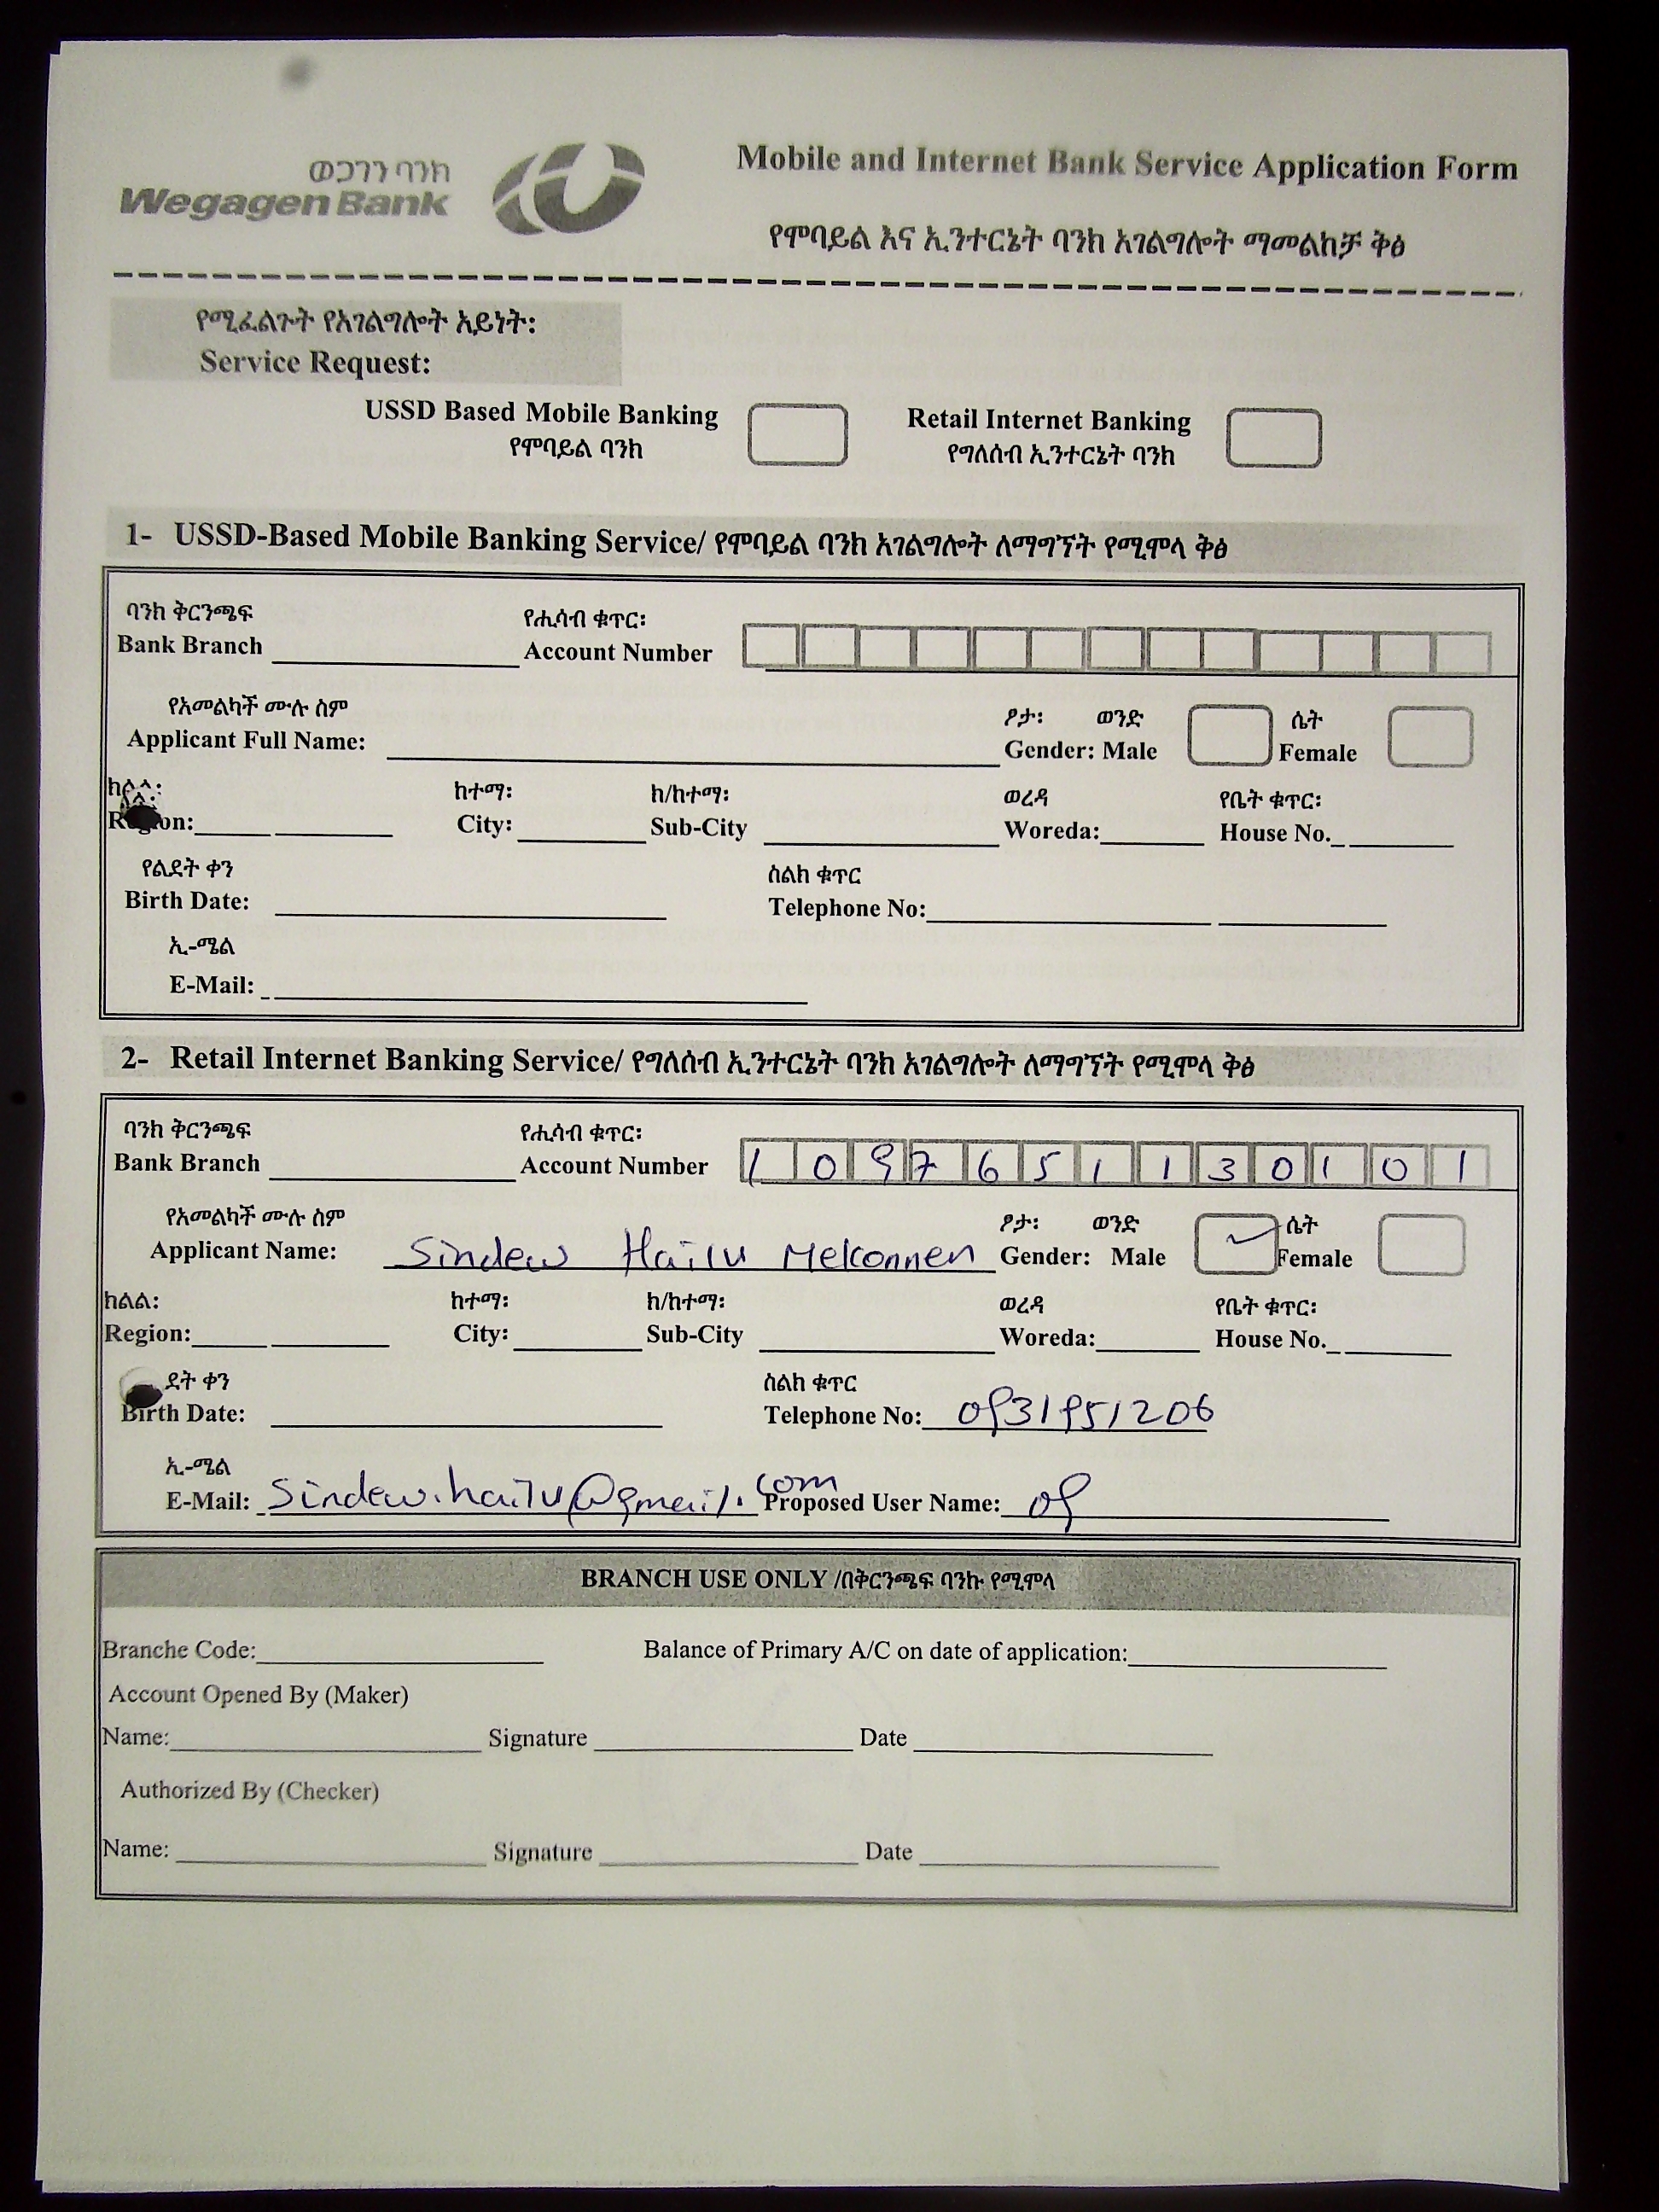 ወጋገን ባንክ
Wegagen Bank
Mobile and Internet Bank Service Application Form
የሞባይል እና ኢንተርኔት ባንክ አገልግሎት ማመልከቻ ቅፅ
የሚፈልጉት የአገልግሎት አይነት:
Service Request:
USSD Based Mobile Banking
የሞባይል ባንክ
Retail Internet Banking
የግለሰብ ኢንተርኔት ባንክ
1- USSD-Based Mobile Banking Service/ የሞባይል ባንክ አገልግሎት ለማግኘት የሚሞላ ቅፅ
ባንክ ቅርንጫፍ የሒሳብ ቁጥር:
Bank Branch Account Number
የአመልካች ሙሉ ስም ፆታ: ወንድ ሴት
Applicant Full Name: Gender: Male Female
ከተማ: ክ/ከተማ: ወረዳ የቤት ቁጥር:
Region: City: Sub-City Woreda: House No.
የልደት ቀን ስልክ ቁጥር
Birth Date: Telephone No:
ኢ-ሜል
E-Mail:
2- Retail Internet Banking Service/ የግለሰብ ኢንተርኔት ባንክ አገልግሎት ለማግኘት የሚሞላ ቅፅ
ባንክ ቅርንጫፍ የሒሳብ ቁጥር:
Bank Branch Account Number 1097651130101
የአመልካች ሙሉ ስም ፆታ: ወንድ ሴት
Applicant Name: Sindew Hailu Mekonnen Gender: Male ✓ Female
ክልል: ከተማ: ክ/ከተማ: ወረዳ የቤት ቁጥር:
Region: City: Sub-City Woreda: House No.
ደት ቀን ስልክ ቁጥር
Birth Date: Telephone No: 0931951206
ኢ-ሜል
E-Mail: Sindew.hailu@gmail.com Proposed User Name: 09
BRANCH USE ONLY /በቅርንጫፍ ባንኩ የሚሞላ
Branche Code: Balance of Primary A/C on date of application:
Account Opened By (Maker)
Name: Signature Date
Authorized By (Checker)
Name: Signature Date